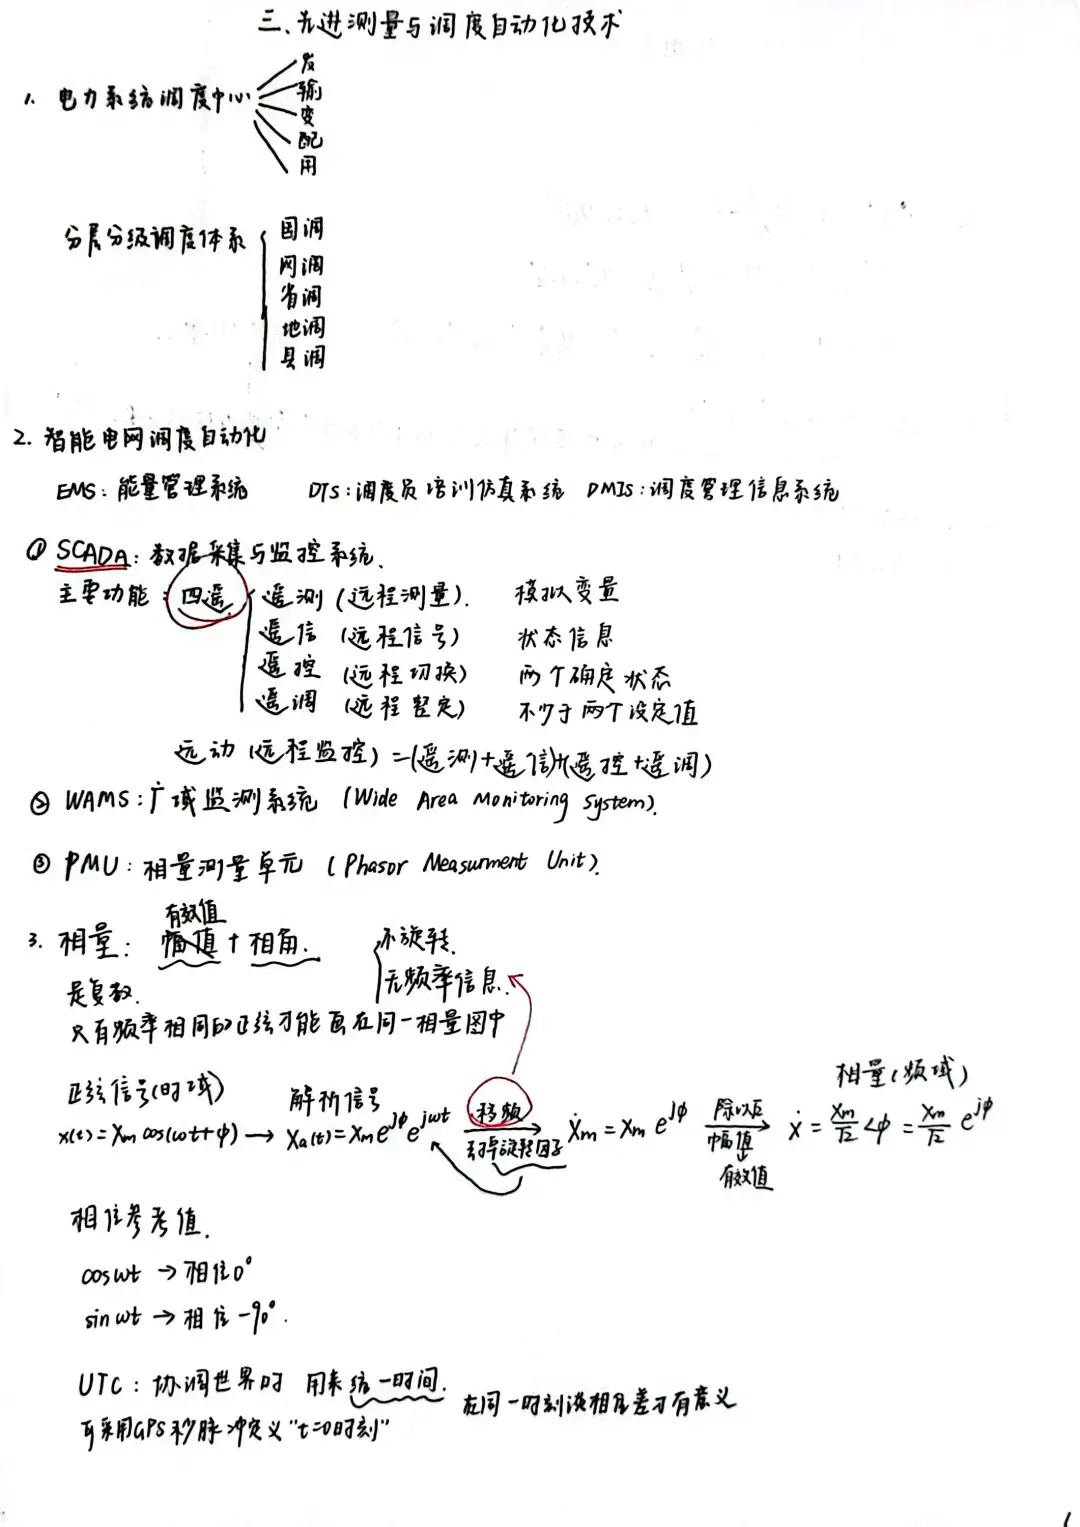 三、先进测量与调度自动化技术
1. 电力系统调度中心
发
输
变
配
用
分层分级调度体系
国调
网调
省调
地调
县调
2. 智能电网调度自动化
EMS：能量管理系统 DTS：调度员培训仿真系统 DMIS：调度管理信息系统
① SCADA：数据采集与监控系统.
主要功能：四遥 遥测（远程测量）. 模拟变量
遥信（远程信号） 状态信息
遥控（远程切换） 两个确定状态
遥调（远程整定） 不少于两个设定值
远动（远程监控）=(遥测+遥信)+(遥控+遥调)
② WAMS：广域监测系统 (Wide Area Monitoring System).
③ PMU：相量测量单元 (Phasor Measurment Unit).
有效值
3. 相量：幅值 + 相角.
不旋转.
无频率信息.
是复数.
只有频率相同的正弦才能画在同一相量图中
正弦信号(时域) 解析信号 移频 相量(频域)
x(t)=Xm cos(ωt+φ) → Xa(t)=Xm e^jφ e^jωt 去掉旋转因子 Ẋm = Xm e^jφ 除以√2 Ẋ = Xm/√2 ∠φ = Xm/√2 e^jφ
幅值
↓
有效值
相位参考值.
cosωt → 相位0°
sinωt → 相位-90°.
UTC：协调世界时 用来统一时间. 在同一时刻谈相位差才有意义
可采用GPS秒脉冲定义"t=0时刻"
1